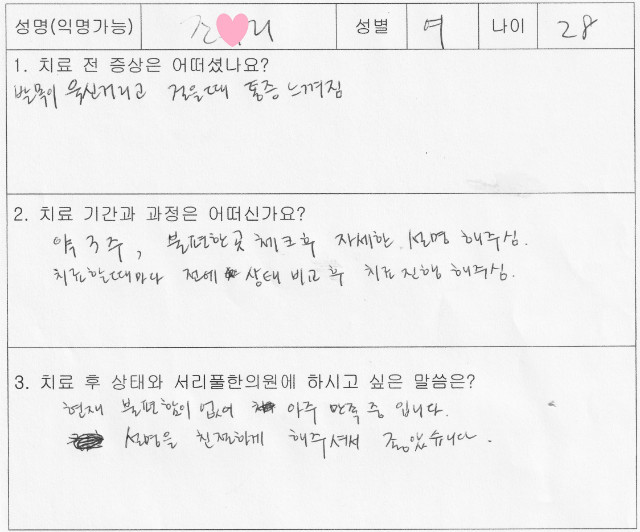 성명(익명가능) 성별 여 나이 28
1. 치료 전 증상은 어떠셨나요?
발목이 욱신거리고 걸을때 통증 느껴짐
2. 치료 기간과 과정은 어떠신가요?
약 3주, 불편한곳 체크후 자세한 설명 해주심.
치료할때마다 전에 상태 비교 후 치료 진행 해주심.
3. 치료 후 상태와 서리풀한의원에 하시고 싶은 말씀은?
현재 불편함이 없어 아주 만족중 입니다.
설명을 친절하게 해주셔서 좋았습니다.